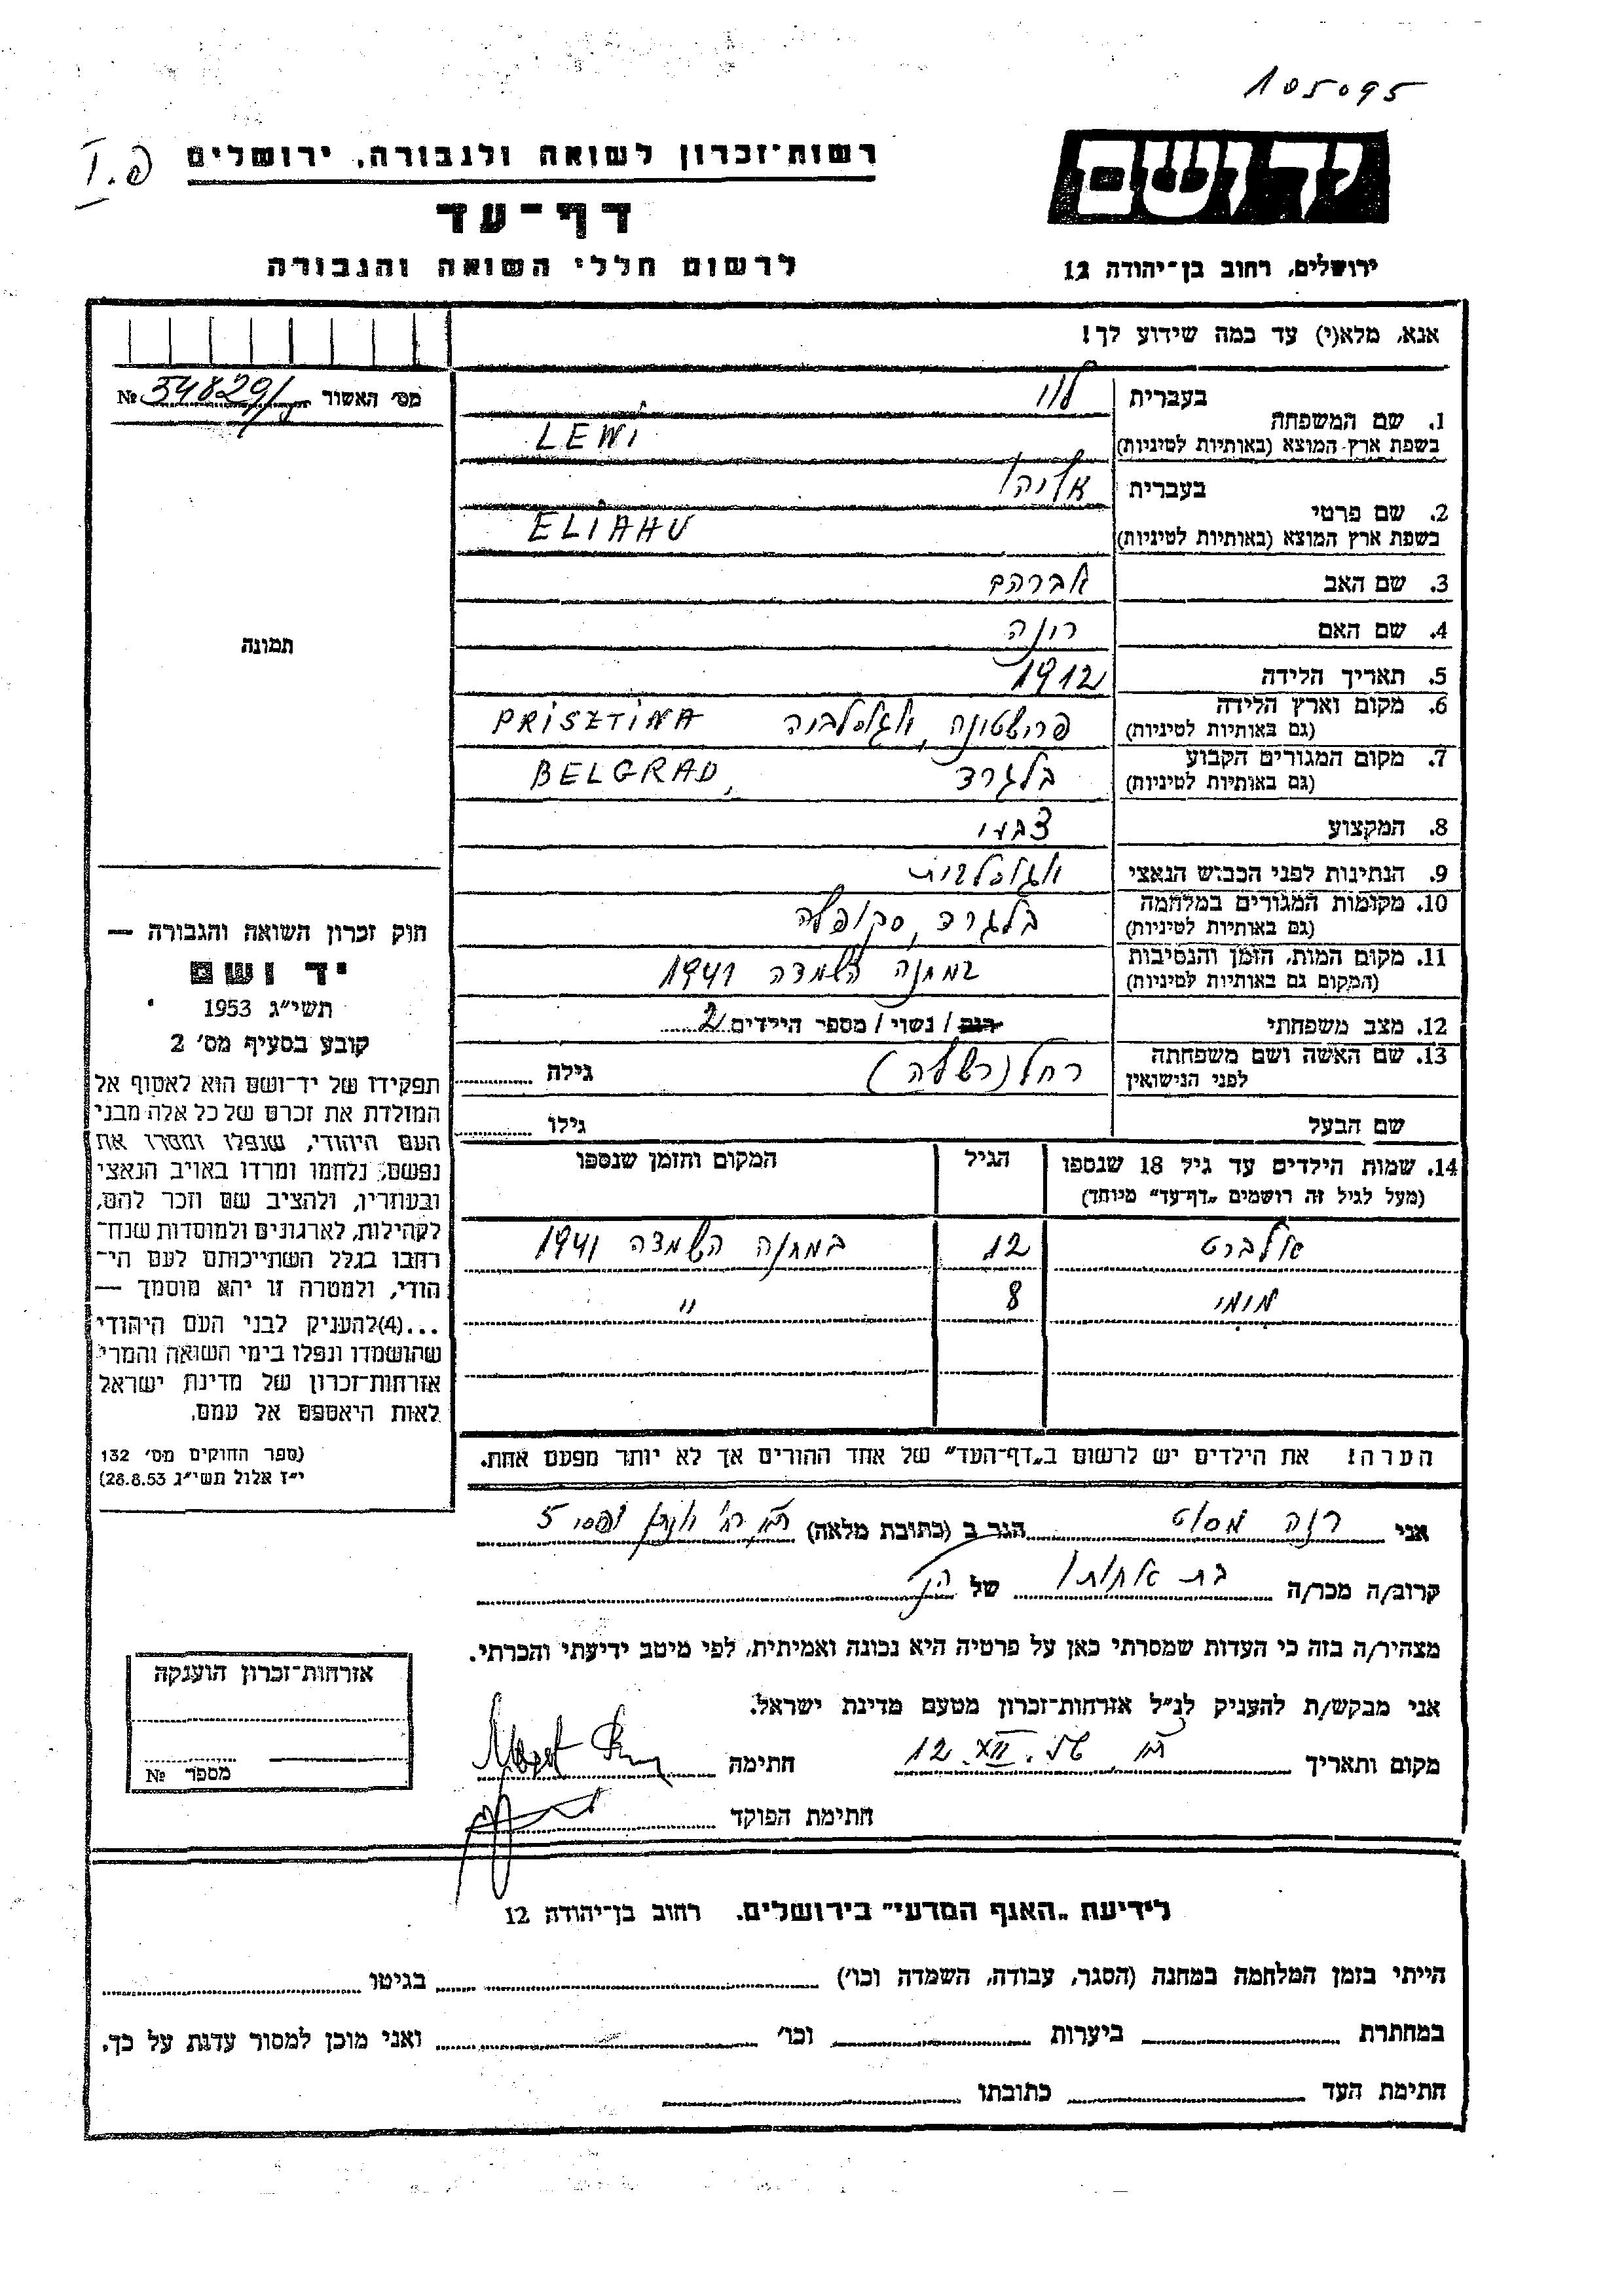 105095
יד ושם
רשות־זכרון לשואה ולגבורה, ירושלים
דף־עד
לרשום חללי השואה והגבורה
ירושלים, רחוב בן־יהודה 12
אנא, מלא(י) עד כמה שידוע לך!
מס׳ האשור № 34829/
1. שם המשפחה בעברית לוי
בשפת ארץ המוצא (באותיות לטיניות) LEWI
2. שם פרטי בעברית אליהו
בשפת ארץ המוצא (באותיות לטיניות) ELIAHU
3. שם האב אברהם
4. שם האם רונה
תמונה
5. תאריך הלידה 1912
6. מקום וארץ הלידה
(גם באותיות לטיניות) פרושטונה, יוגוסלביה PRISZTINA
7. מקום המגורים הקבוע
(גם באותיות לטיניות) בלגרד BELGRAD,
8. המקצוע צבעי
9. הנתינות לפני הכבוש הנאצי יוגוסלבית
10. מקומות המגורים במלחמה
(גם באותיות לטיניות) בלגרד, סקופלה
11. מקום המות, הזמן והנסיבות
(המקום גם באותיות לטיניות) במחנה השמדה 1941
12. מצב משפחתי רווק / נשוי / מספר הילדים 2
13. שם האשה ושם משפחתה
לפני הנישואין רחל (רשלה) גילה
שם הבעל גילו
14. שמות הילדים עד גיל 18 שנספו הגיל המקום והזמן שנספו
(מעל לגיל זה רושמים „דף־עד” מיוחד)
אלברט 12 במחנה השמדה 1941
מומי 8 "
הערה! את הילדים יש לרשום ב„דף־העד” של אחד ההורים אך לא יותר מפעם אחת.
חוק זכרון השואה והגבורה —
יד ושם
תשי״ג 1953
קובע בסעיף מס׳ 2
תפקידו של יד־ושם הוא לאסוף אל
המולדת את זכרם של כל אלה מבני
העם היהודי, שנפלו ומסרו את
נפשם, נלחמו ומרדו באויב הנאצי
ובעוזריו, ולהציב שם וזכר להם,
לקהילות, לארגונים ולמוסדות שנח־
רחבו בגלל השתייכותם לעם הי־
הודי, ולמטרה זו יהא מוסמך —
...(4) להעניק לבני העם היהודי
שהושמדו ונפלו בימי השואה והמרי
אזרחות־זכרון של מדינת ישראל
לאות היאספם אל עמם.
(ספר החוקים מס׳ 132
י״ז אלול תשי״ג 28.8.53)
אני רנה הגר ב (כתובת מלאה) 5
קרוב/ה מכר/ה בת אחותו של הנ״ל
מצהיר/ה בזה כי העדות שמסרתי כאן על פרטיה היא נכונה ואמיתית, לפי מיטב ידיעתי והכרתי.
אני מבקש/ת להעניק לנ״ל אזרחות־זכרון מטעם מדינת ישראל.
מקום ותאריך 12.XII. חתימה
חתימת הפוקד
אזרחות־זכרון הוענקה
מספר №
לידיעת „האגף המדעי” בירושלים. רחוב בן־יהודה 12
הייתי בזמן המלחמה במחנה (הסגר, עבודה, השמדה וכו׳) בגיטו
במחתרת ביערות וכו׳ ואני מוכן למסור עדות על כך.
חתימת העד כתובתו